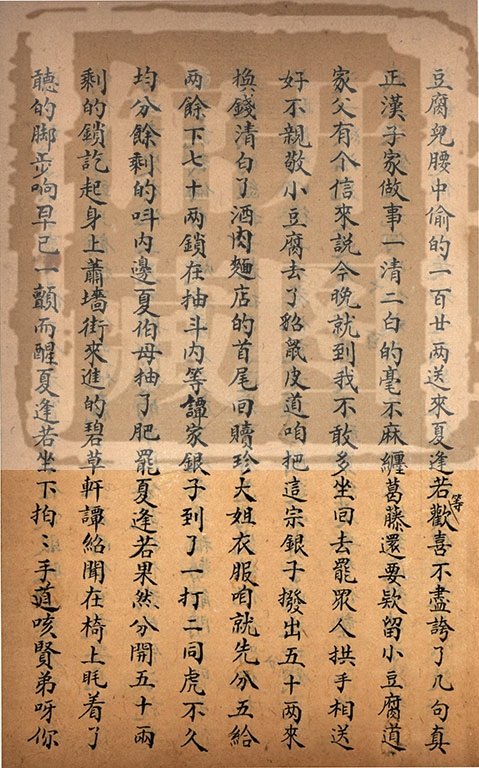 豆腐兒腰中偷的一百廿兩送來夏逢若等歡喜不盡誇了几句真
正漢子家做事一清二白的毫不麻纏葛藤還要欵留小豆腐道
家父有个信來説今晚就到我不敢多坐回去罷眾人拱手相送
好不親敬小豆腐去了貂鼠皮道咱把這宗銀子撥出五十兩來
換錢清白了酒肉麵店的首尾回贖珍大姐衣服咱就先分五給
两餘下七十两鎖在抽斗内等譚家銀子到了一打二同虎不久
均分餘剩的呌内邊夏伯母抽了肥罷夏逢若果然分開五十兩
剩的鎖訖起身上蕭墻街來進的碧草軒譚紹聞在椅上眊着了
聽的脚步响早已一顫而醒夏逢若坐下拍〻手道咳賢弟呀你